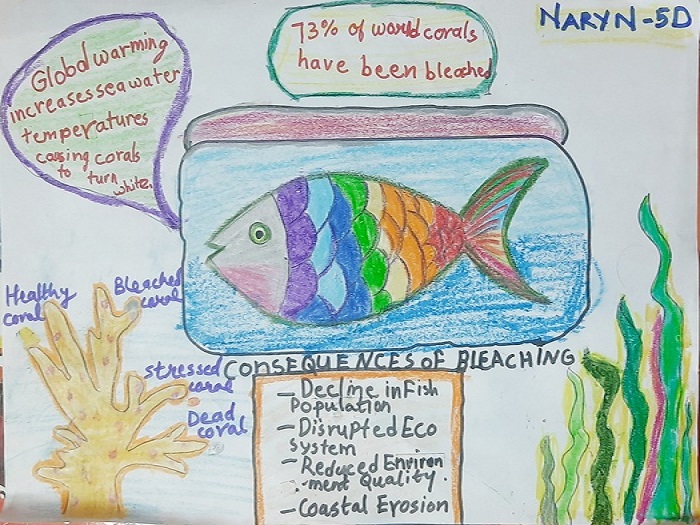 NARYN-5D
73% of world corals
have been bleached
Global warming
increases sea water
temperatures
causing corals
to turn
white.
Healthy
coral
Bleached
coral
stressed
coral
Dead
coral
CONSEQUENCES OF BLEACHING
- Decline in Fish
Population
- Disrupted Eco
system
- Reduced Environ
-ment Quality.
- Coastal Erosion